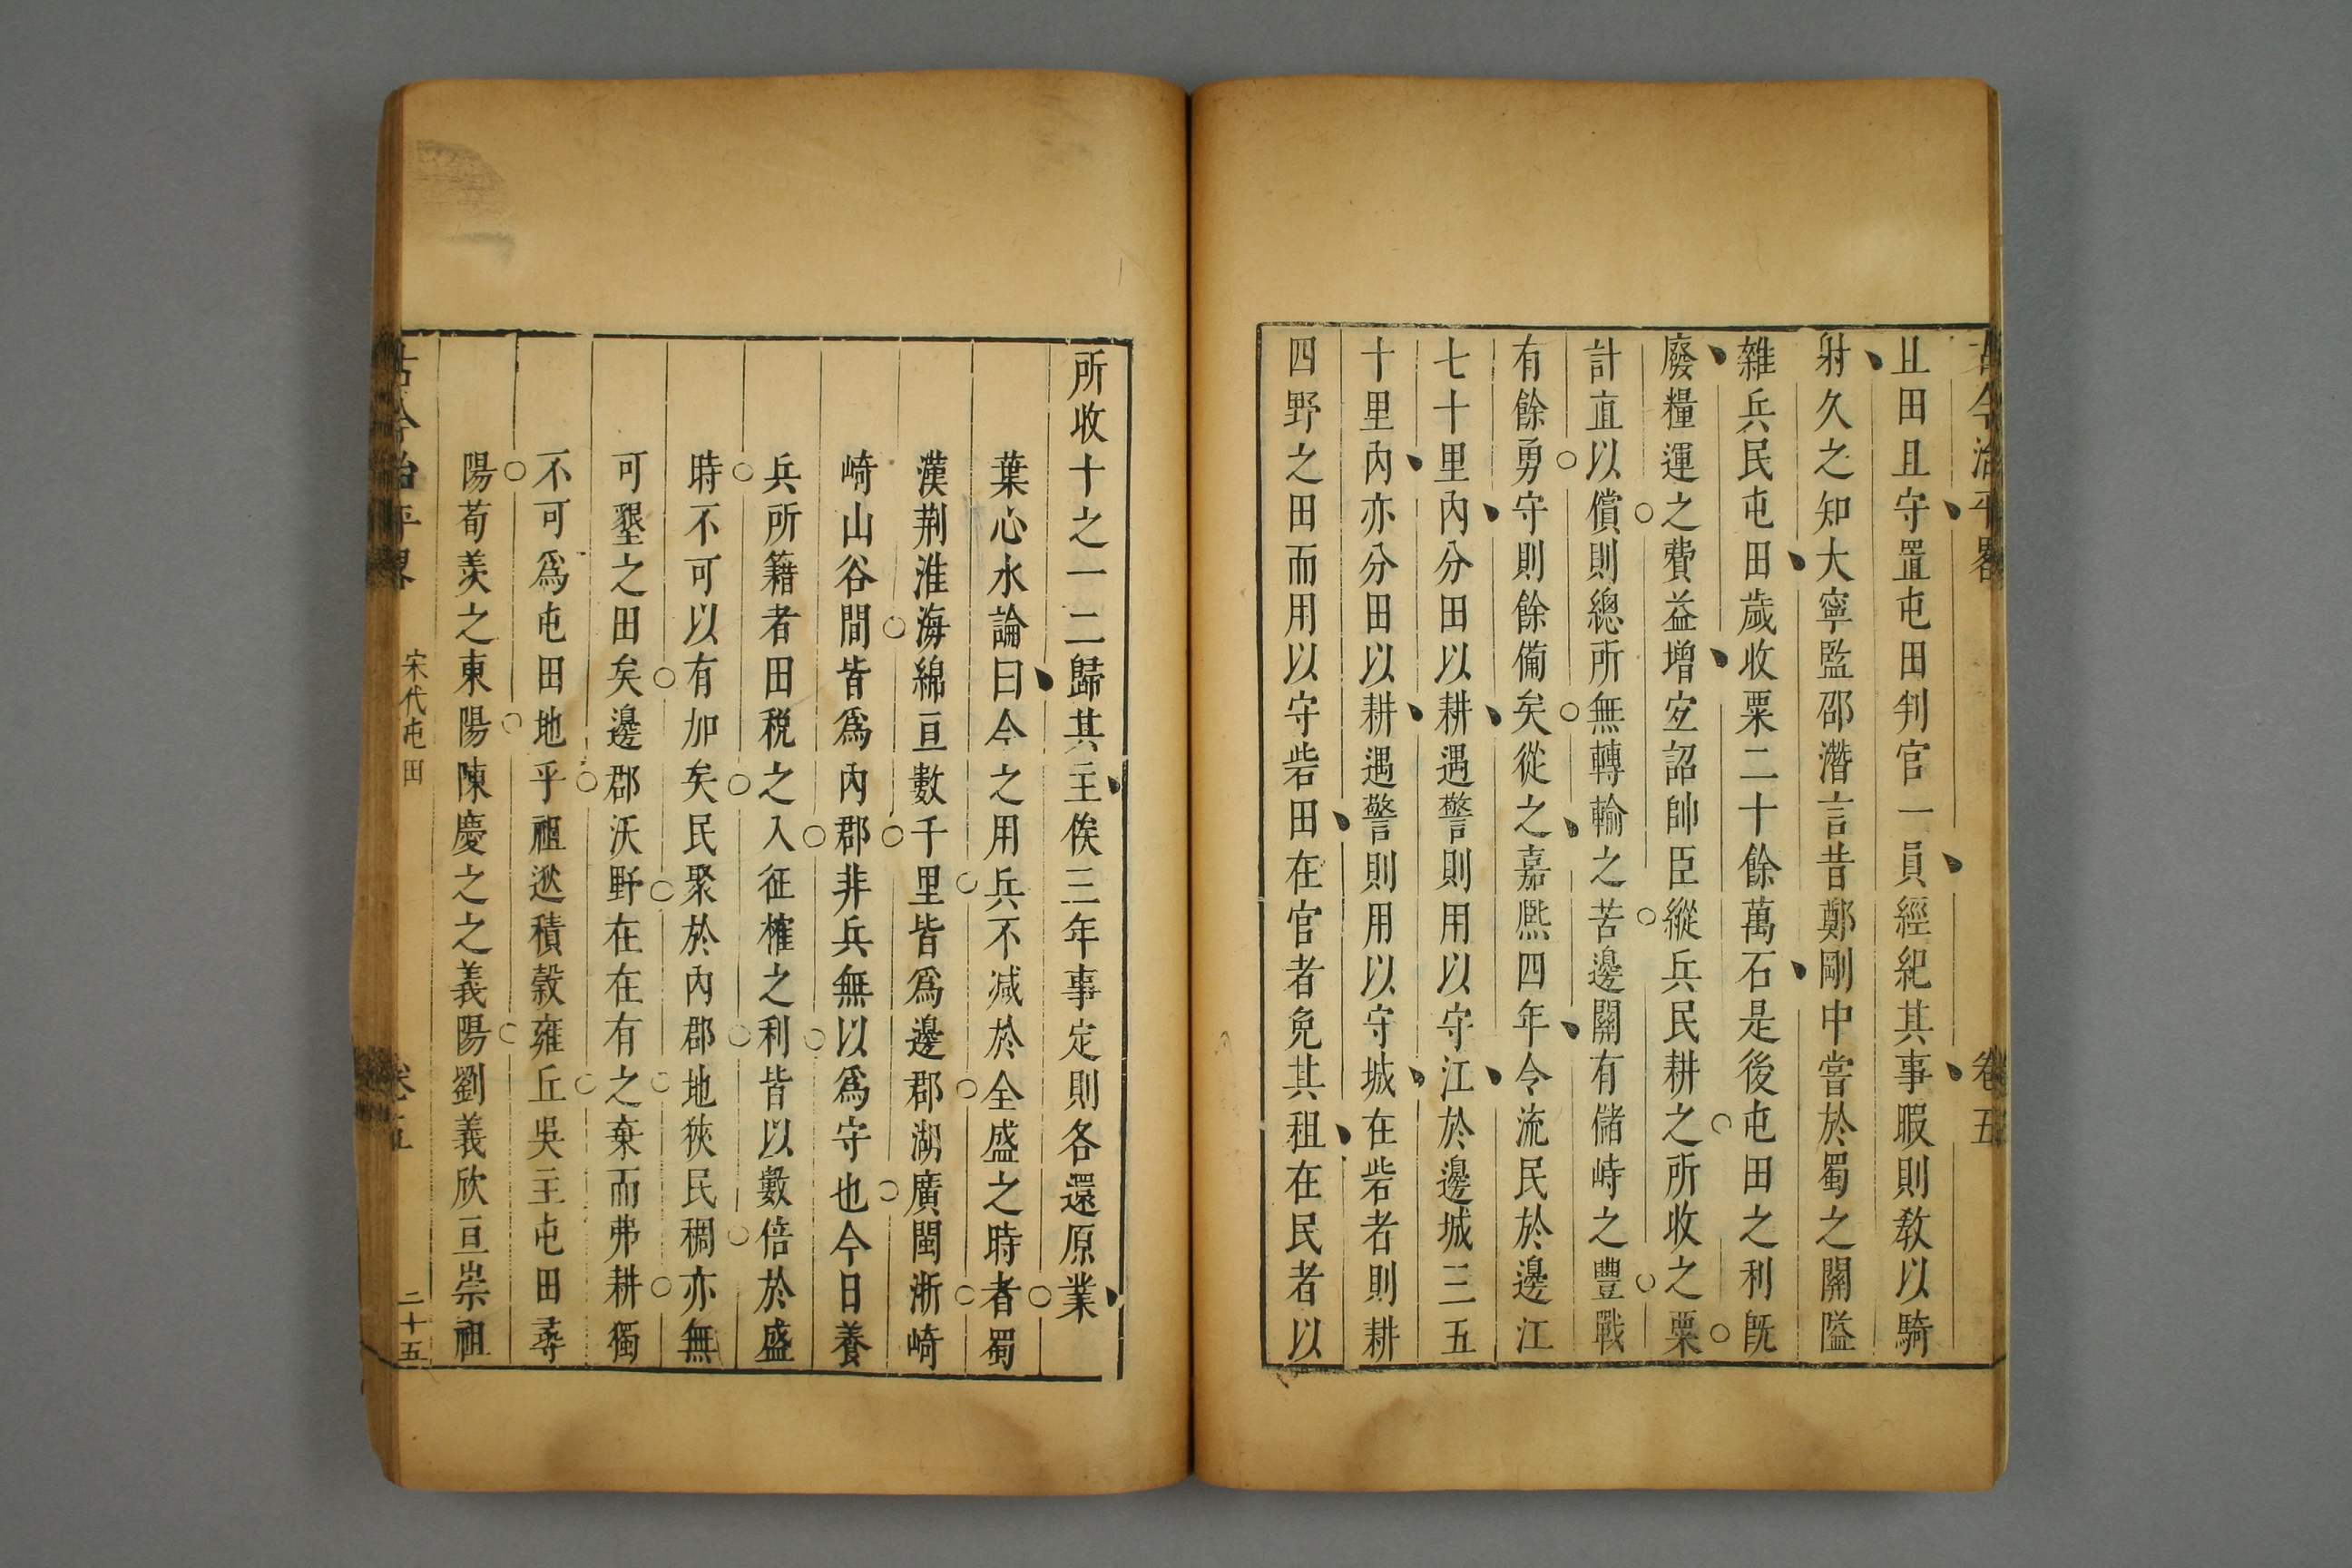 古今治平畧 卷五
且田且守置屯田判官一員經紀其事暇則敎以騎
射久之知大寧監邵潛言昔鄭剛中嘗於蜀之關隘
雜兵民屯田歲收粟二十餘萬石是後屯田之利旣
廢糧運之費益增宐詔帥臣縱兵民耕之所收之粟
計直以償則總所無轉輸之苦邊關有儲峙之豐戰
有餘勇守則餘備矣從之嘉熈四年令流民於邊江
七十里內分田以耕遇警則用以守江於邊城三五
十里內亦分田以耕遇警則用以守城在砦者則耕
四野之田而用以守砦田在官者免其租在民者以
所收十之一二歸其主俟三年事定則各還原業
葉心水論曰今之用兵不减於全盛之時者蜀
漢荆淮海綿亘數千里皆爲邊郡湖廣閩浙崎
崎山谷間皆爲內郡非兵無以爲守也今日養
兵所籍者田税之入征榷之利皆以數倍於盛
時不可以有加矣民聚於內郡地狹民稠亦無
可墾之田矣邊郡沃野在在有之棄而弗耕獨
不可爲屯田地乎祖逖積穀雍丘吳主屯田尋
陽荀羨之東陽陳慶之之義陽劉義欣亘崇祖
古今治平畧 宋代屯田 卷五 二十五